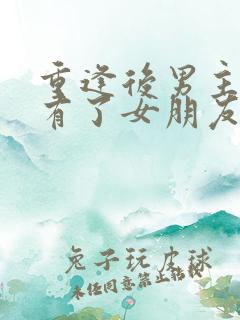 重逢後男主
有了女朋友
兔子玩皮球
未经同意禁止转载